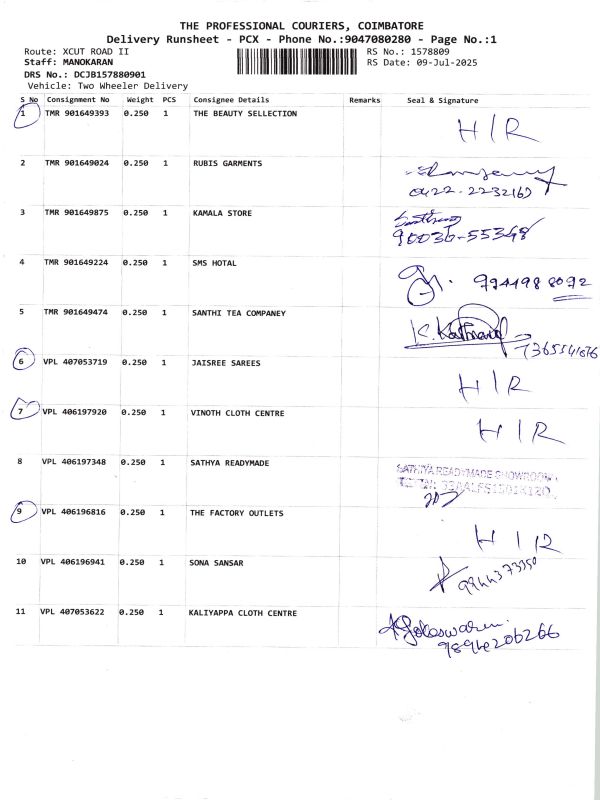 THE PROFESSIONAL COURIERS, COIMBATORE
Delivery Runsheet - PCX - Phone No.:9047080280 - Page No.:1
Route: XCUT ROAD II RS No.: 1578809
Staff: MANOKARAN RS Date: 09-Jul-2025
DRS No.: DCJB157880901
Vehicle: Two Wheeler Delivery
S No Consignment No Weight PCS Consignee Details Remarks Seal & Signature
1 TMR 901649393 0.250 1 THE BEAUTY SELLECTION H/R
2 TMR 901649024 0.250 1 RUBIS GARMENTS
0422-2232167
3 TMR 901649875 0.250 1 KAMALA STORE
90036-55348
4 TMR 901649224 0.250 1 SMS HOTAL 9944988092
5 TMR 901649474 0.250 1 SANTHI TEA COMPANEY
6 VPL 407053719 0.250 1 JAISREE SAREES H/R
7 VPL 406197920 0.250 1 VINOTH CLOTH CENTRE H/R
8 VPL 406197348 0.250 1 SATHYA READYMADE SATHYA READYMADE SHOWROOM
9 VPL 406196816 0.250 1 THE FACTORY OUTLETS H/R
10 VPL 406196941 0.250 1 SONA SANSAR 9944373350
11 VPL 407053622 0.250 1 KALIYAPPA CLOTH CENTRE